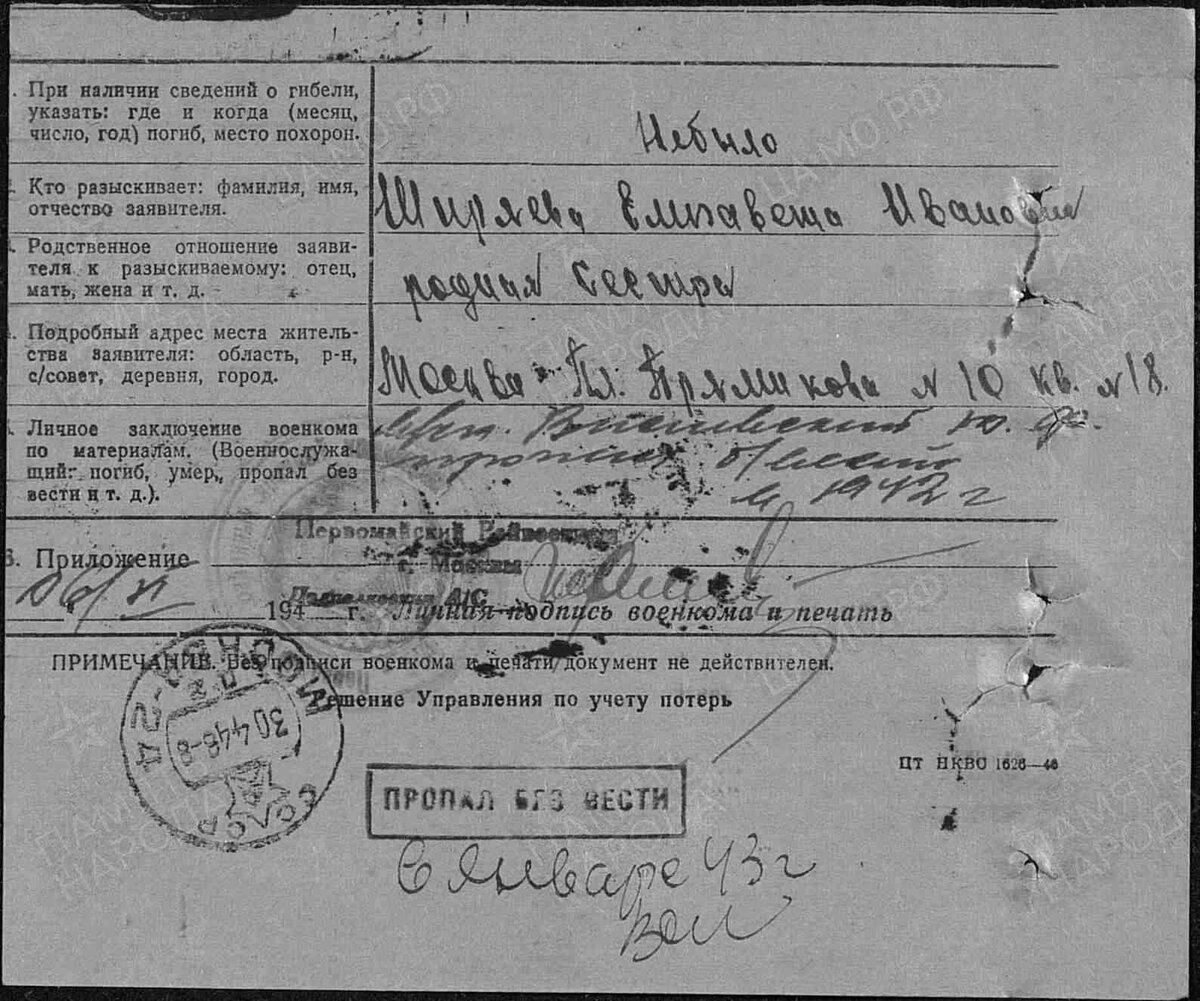 При наличии сведений о гибели,
указать: где и когда (месяц,
число, год) погиб, место похорон.
Небыло
Кто разыскивает: фамилия, имя,
отчество заявителя.
Ширяева Елизавета Ивановна
Родственное отношение заяви-
теля к разыскиваемому: отец,
мать, жена и т. д.
родная сестра
Подробный адрес места житель-
ства заявителя: область, р-н,
с/совет, деревня, город.
Москва Пл. Прямикова N 10 кв. N 18.
Личное заключение военкома
по материалам. (Военнослужа-
щий: погиб, умер, пропал без
вести и т. д.).
1942 г
Первомайский Райвоенкомат
г. Москвы
6. Приложение
194 г. Личная подпись военкома и печать
ПРИМЕЧАНИЕ. Без подписи военкома и печати документ не действителен.
Решение Управления по учету потерь
МОСКВА-52 Д
30446-8
СССР
ЦТ НКВО 1626—46
ПРОПАЛ БЕЗ ВЕСТИ
в январе 43 г
ПАМЯТЬ НАРОДА
ЦАМО РФ